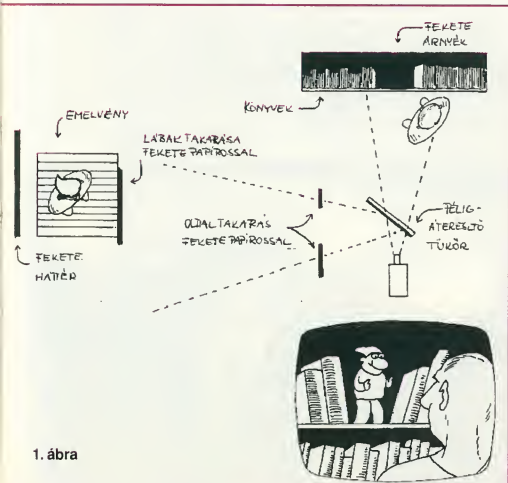 FEKETE
ÁRNYÉK
KÖNYVEK
EMELVÉNY
LÁBAK TAKARÁSA
FEKETE PAPÍROSSAL
OLDALTAKARÁS
FEKETE PAPÍROSSAL
FÉLIG-
ÁTERESZTŐ
TÜKÖR
FEKETE
HÁTTÉR
1. ábra